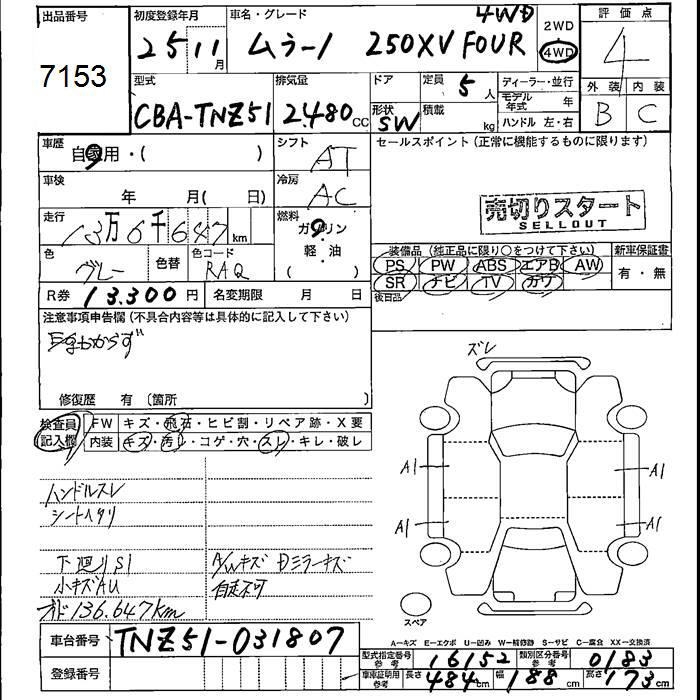 出品番号
7153
初度登録年月
25 11月
車名・グレード
4WD
ムラーノ 250XV FOUR
2WD
4WD
評価点
4
外装 内装
B C
型式
CBA-TNZ51
排気量
2.480cc
ドア
形状
SW
定員
5人
積載
kg
ディーラー・並行
モデル年式 年
ハンドル 左・右
車歴
自家用・( )
シフト
AT
セールスポイント (正常に機能するものに限ります)
車検
年 月( 日)
冷房
AC
売切りスタート
SELLOUT
走行
13万6千647km
燃料
ガソリン
軽・油
( )
色
グレー
色替
色コード
RAQ
装備品 (純正品に限り○をつけて下さい)
PS PW ABS エアB AW
SR ナビ TV カワ
後日品
新車保証書
有・無
R券 13.300円
名変期限 月 日
注意事項申告欄 (不具合内容等は具体的に記入して下さい)
修復歴 有 (箇所 )
検査員記入欄
FW キズ・飛石・ヒビ割・リペア跡・X要
内装 キズ・汚レ・コゲ・穴・スレ・キレ・破レ
ハンドルスレ
シートヘタリ
下廻りS1
A/Wキズ Dミラーキズ
小キズAU
自走不可
オド136.647km
ズレ
A1
A1
A1
A1
スペア
A-キズ E-エクボ U-凹み W-補修跡 S-サビ C-腐食 XX-交換済
車台番号 TNZ51-031807
登録番号
型式指定番号 参考 16152
類別区分番号 参考 0183
車庫証明用 参考 長さ 484cm 幅 188cm 高さ 173cm